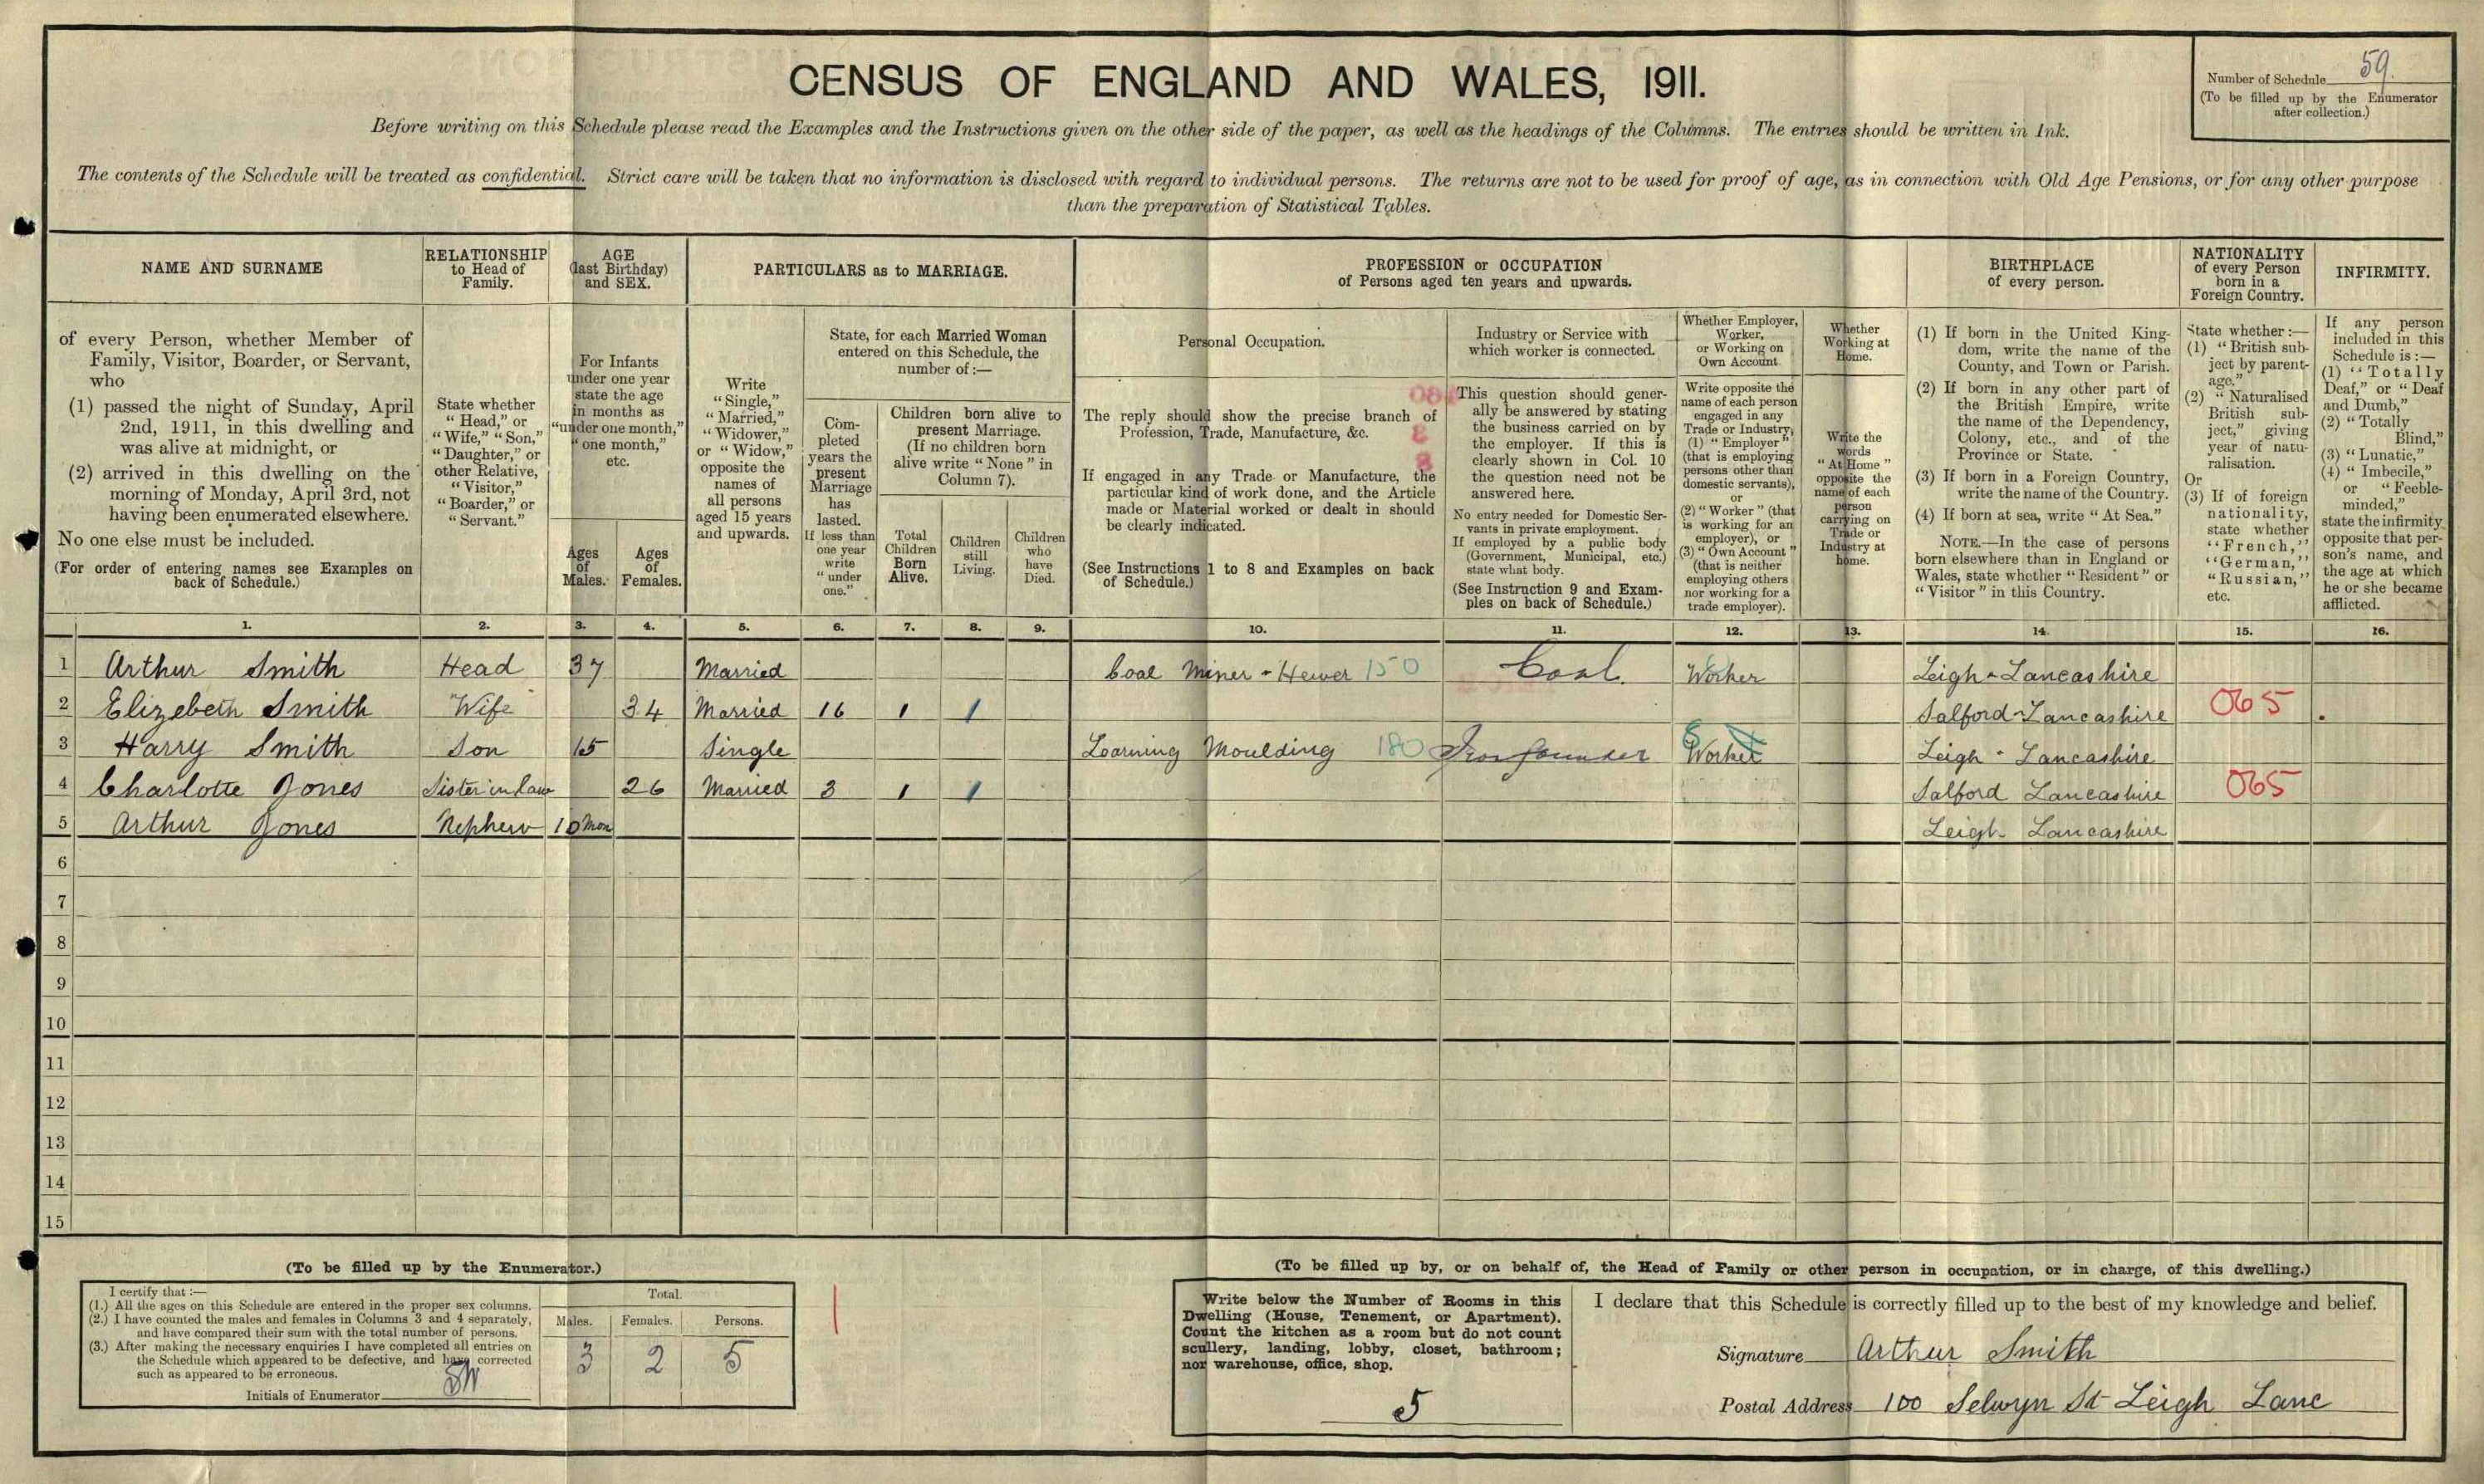 CENSUS OF ENGLAND AND WALES, 1911.
Number of Schedule 59.
(To be filled up by the Enumerator
after collection.)
Before writing on this Schedule please read the Examples and the Instructions given on the other side of the paper, as well as the headings of the Columns. The entries should be written in Ink.
The contents of the Schedule will be treated as confidential. Strict care will be taken that no information is disclosed with regard to individual persons. The returns are not to be used for proof of age, as in connection with Old Age Pensions, or for any other purpose
than the preparation of Statistical Tables.
NAME AND SURNAME
RELATIONSHIP
to Head of
Family.
AGE
(last Birthday)
and SEX.
PARTICULARS as to MARRIAGE.
PROFESSION or OCCUPATION
of Persons aged ten years and upwards.
BIRTHPLACE
of every person.
NATIONALITY
of every Person
born in a
Foreign Country.
INFIRMITY.
of every Person, whether Member of
Family, Visitor, Boarder, or Servant,
who
(1) passed the night of Sunday, April
2nd, 1911, in this dwelling and
was alive at midnight, or
(2) arrived in this dwelling on the
morning of Monday, April 3rd, not
having been enumerated elsewhere.
No one else must be included.
(For order of entering names see Examples on
back of Schedule.)
State whether
"Head," or
"Wife," "Son,"
"Daughter," or
other Relative,
"Visitor,"
"Boarder," or
"Servant."
For Infants
under one year
state the age
in months as
"under one month,"
"one month,"
etc.
Ages
of
Males.
Ages
of
Females.
Write
"Single,"
"Married,"
"Widower,"
or "Widow,"
opposite the
names of
all persons
aged 15 years
and upwards.
State, for each Married Woman
entered on this Schedule, the
number of:—
Com-
pleted
years the
present
Marriage
has
lasted.
If less than
one year
write
"under
one."
Children born alive to
present Marriage.
(If no children born
alive write "None" in
Column 7).
Total
Children
Born
Alive.
Children
still
Living.
Children
who
have
Died.
Personal Occupation.
The reply should show the precise branch of
Profession, Trade, Manufacture, &c.
If engaged in any Trade or Manufacture, the
particular kind of work done, and the Article
made or Material worked or dealt in should
be clearly indicated.
(See Instructions 1 to 8 and Examples on back
of Schedule.)
Industry or Service with
which worker is connected.
This question should gener-
ally be answered by stating
the business carried on by
the employer. If this is
clearly shown in Col. 10
the question need not be
answered here.
No entry needed for Domestic Ser-
vants in private employment.
If employed by a public body
(Government, Municipal, etc.)
state what body.
(See Instruction 9 and Exam-
ples on back of Schedule.)
Whether Employer,
Worker,
or Working on
Own Account.
Write opposite the
name of each person
engaged in any
Trade or Industry,
(1) "Employer"
(that is employing
persons other than
domestic servants),
or
(2) "Worker" (that
is working for an
employer), or
(3) "Own Account"
(that is neither
employing others
nor working for a
trade employer).
Whether
Working at
Home.
Write the
words
"At Home"
opposite the
name of each
person
carrying on
Trade or
Industry at
home.
(1) If born in the United King-
dom, write the name of the
County, and Town or Parish.
(2) If born in any other part of
the British Empire, write
the name of the Dependency,
Colony, etc., and of the
Province or State.
(3) If born in a Foreign Country,
write the name of the Country.
(4) If born at sea, write "At Sea."
NOTE.—In the case of persons
born elsewhere than in England or
Wales, state whether "Resident" or
"Visitor" in this Country.
State whether:—
(1) "British sub-
ject by parent-
age."
(2) "Naturalised
British sub-
ject," giving
year of natu-
ralisation.
Or
(3) If of foreign
nationality,
state whether
"French,"
"German,"
"Russian,"
etc.
If any person
included in this
Schedule is:—
(1) "Totally
Deaf," or "Deaf
and Dumb,"
(2) "Totally
Blind,"
(3) "Lunatic,"
(4) "Imbecile,"
or "Feeble-
minded,"
state the infirmity
opposite that per-
son's name, and
the age at which
he or she became
afflicted.
1. 2. 3. 4. 5. 6. 7. 8. 9. 10. 11. 12. 13. 14. 15. 16.
1 Arthur Smith Head 37 Married Coal Miner - Hewer 150 Coal. Worker Leigh - Lancashire
2 Elizebeth Smith Wife 34 Married 16 1 1 Salford - Lancashire 065
3 Harry Smith Son 15 Single Learning Moulding 180 Ironfounder Worker Leigh - Lancashire
4 Charlotte Jones Sister in Law 26 Married 3 1 1 Salford Lancashire 065
5 Arthur Jones Nephew 10 Mon Leigh Lancashire
6
7
8
9
10
11
12
13
14
15
(To be filled up by the Enumerator.)
I certify that:—
(1.) All the ages on this Schedule are entered in the proper sex columns.
(2.) I have counted the males and females in Columns 3 and 4 separately,
and have compared their sum with the total number of persons.
(3.) After making the necessary enquiries I have completed all entries on
the Schedule which appeared to be defective, and have corrected
such as appeared to be erroneous.
Initials of Enumerator
Total.
Males. Females. Persons.
3 2 5
(To be filled up by, or on behalf of, the Head of Family or other person in occupation, or in charge, of this dwelling.)
Write below the Number of Rooms in this
Dwelling (House, Tenement, or Apartment).
Count the kitchen as a room but do not count
scullery, landing, lobby, closet, bathroom;
nor warehouse, office, shop.
5
I declare that this Schedule is correctly filled up to the best of my knowledge and belief.
Signature Arthur Smith
Postal Address 100 Selwyn St Leigh Lanc